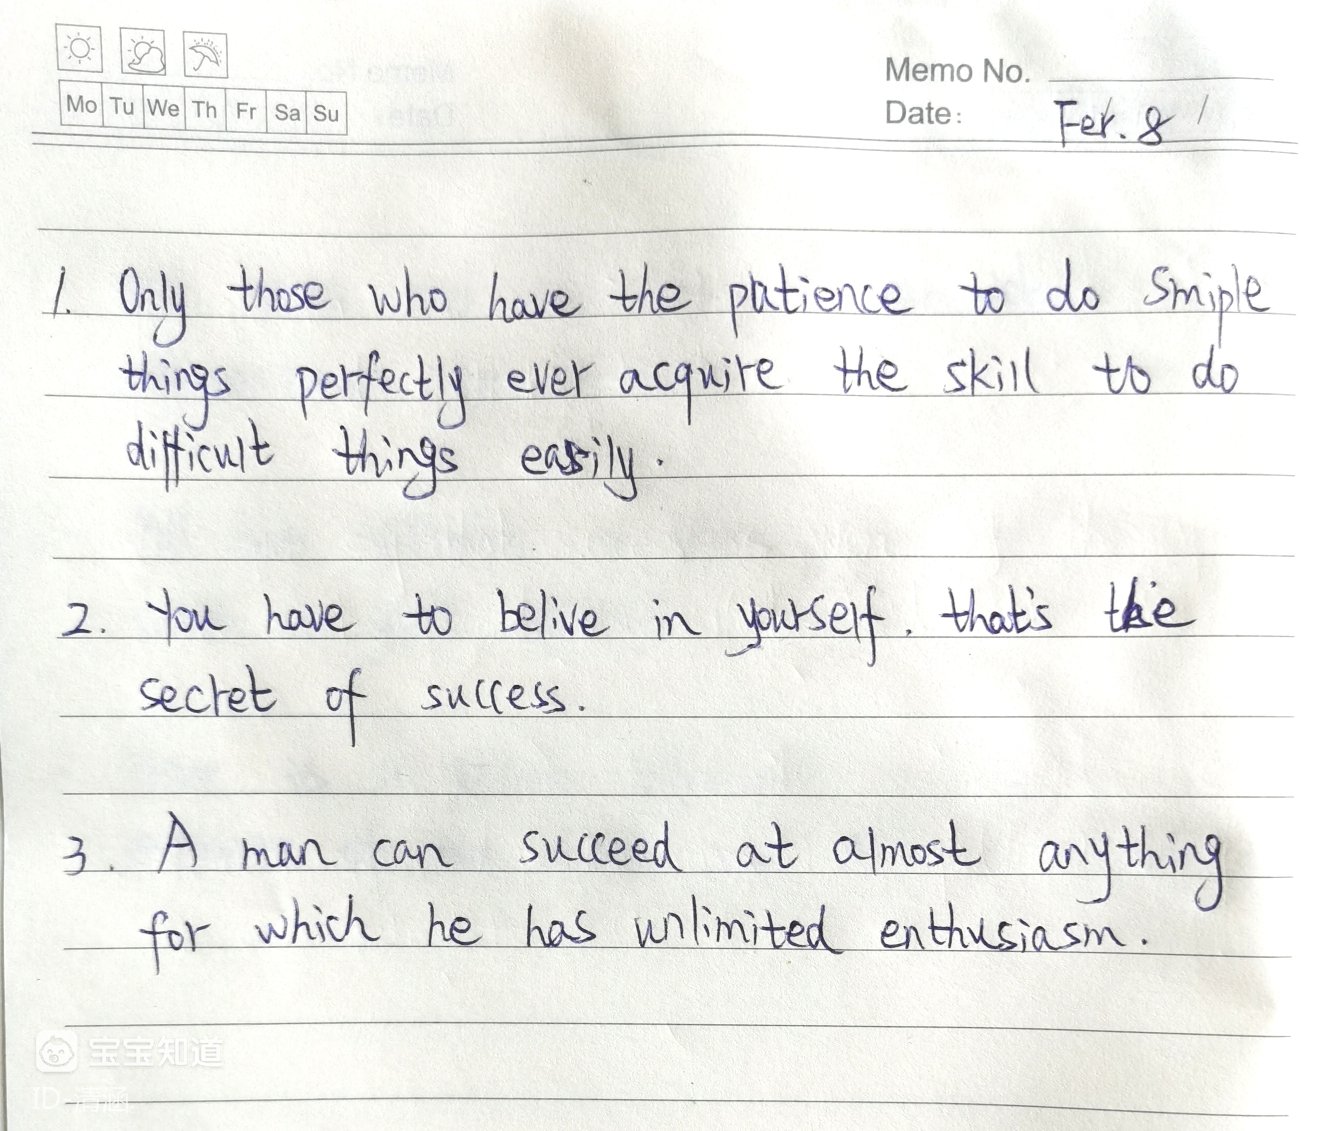 Memo No.
Mo Tu We Th Fr Sa Su
Date: Fer. 8
1. Only those who have the patience to do smiple
things perfectly ever acquire the skill to do
difficult things easily.
2. You have to belive in yourself. that's the
secret of success.
3. A man can succeed at almost anything
for which he has unlimited enthusiasm.
宝宝知道
ID:清涵